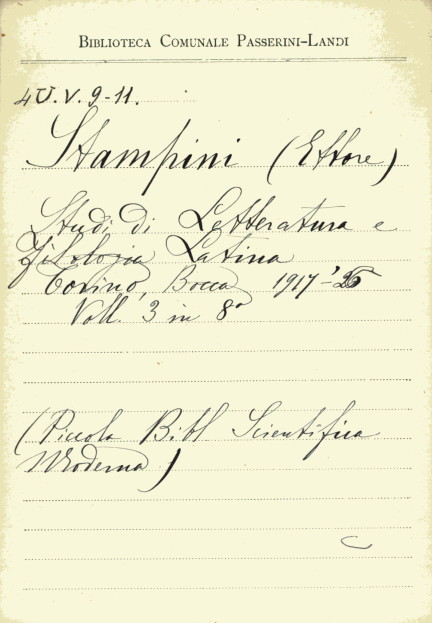 BIBLIOTECA COMUNALE PASSERINI-LANDI
4U.V.9-11.
Stampini (Ettore)
Studi di Letteratura e
Filologia Latina
Torino, Bocca 1917-'26
Voll. 3 in 8º
(Piccola Bibl Scientifica
Moderna)